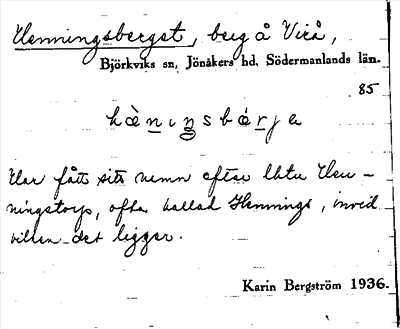 Henningsberget, berg å Virå,
Björkviks sn, Jönåkers hd, Södermanlands län.
85
hæ̀nıŋsbárja
Har fått sitt namn efter lhtu Hen-
ningstorp, ofta kallad Hennings, invid
vilken det ligger.
Karin Bergström 1936.